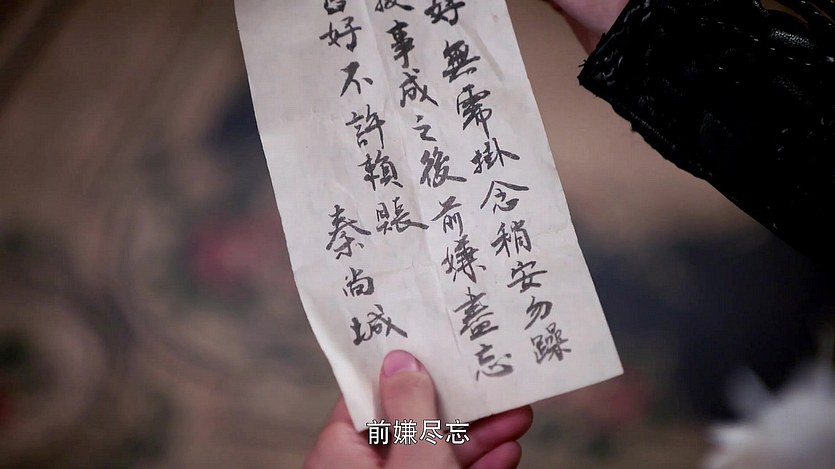 好無需掛念稍安勿躁
事成之後前嫌盡忘
好不許賴賬
秦尚城
前嫌尽忘